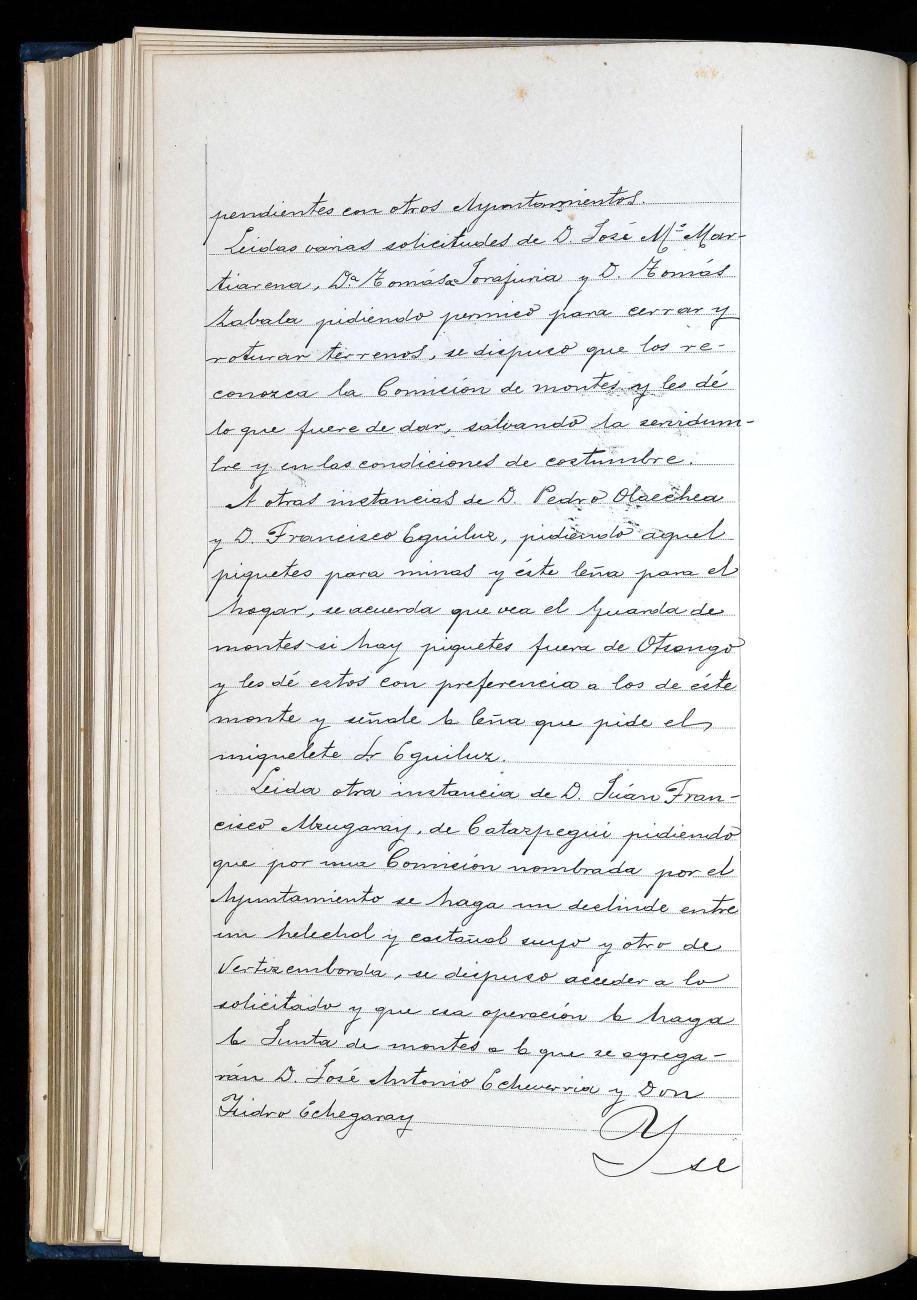 pendientes con otros Ayuntamientos.
Leidas varias solicitudes de D. José Mª Mar-
tiarena, Dª Tomása Iorajuria y D. Tomás
Zabala pidiendo permiso para cerrar y
roturar terrenos, se dispuso que los re-
conozca la Comisión de montes y les dé
lo que fuere de dar, salvando la servidum-
bre y en las condiciones de costumbre.
A otras instancias de D. Pedro Olaechea
y D. Francisco Eguiluz, pidiendo aquel
piquetes para minas y éste leña para el
hogar, se acuerda que vea el Guarda de
montes si hay piquetes fuera de Otsango
y les dé estos con preferencia a los de éste
monte y señale la leña que pide el
miquelete Sr Eguiluz.
Leida otra instancia de D. Juán Fran-
cisco Alzugaray, de Catazpegui pidiendo
que por una Comisión nombrada por el
Ayuntamiento se haga un deslinde entre
un helechal y castañal suyo y otro de
Vertizemborda, se dispuso acceder a lo
solicitado y que esa operación la haga
la Junta de montes a la que se agrega-
rán D. José Antonio Echeverria y Don
Isidro Echegaray
Y se